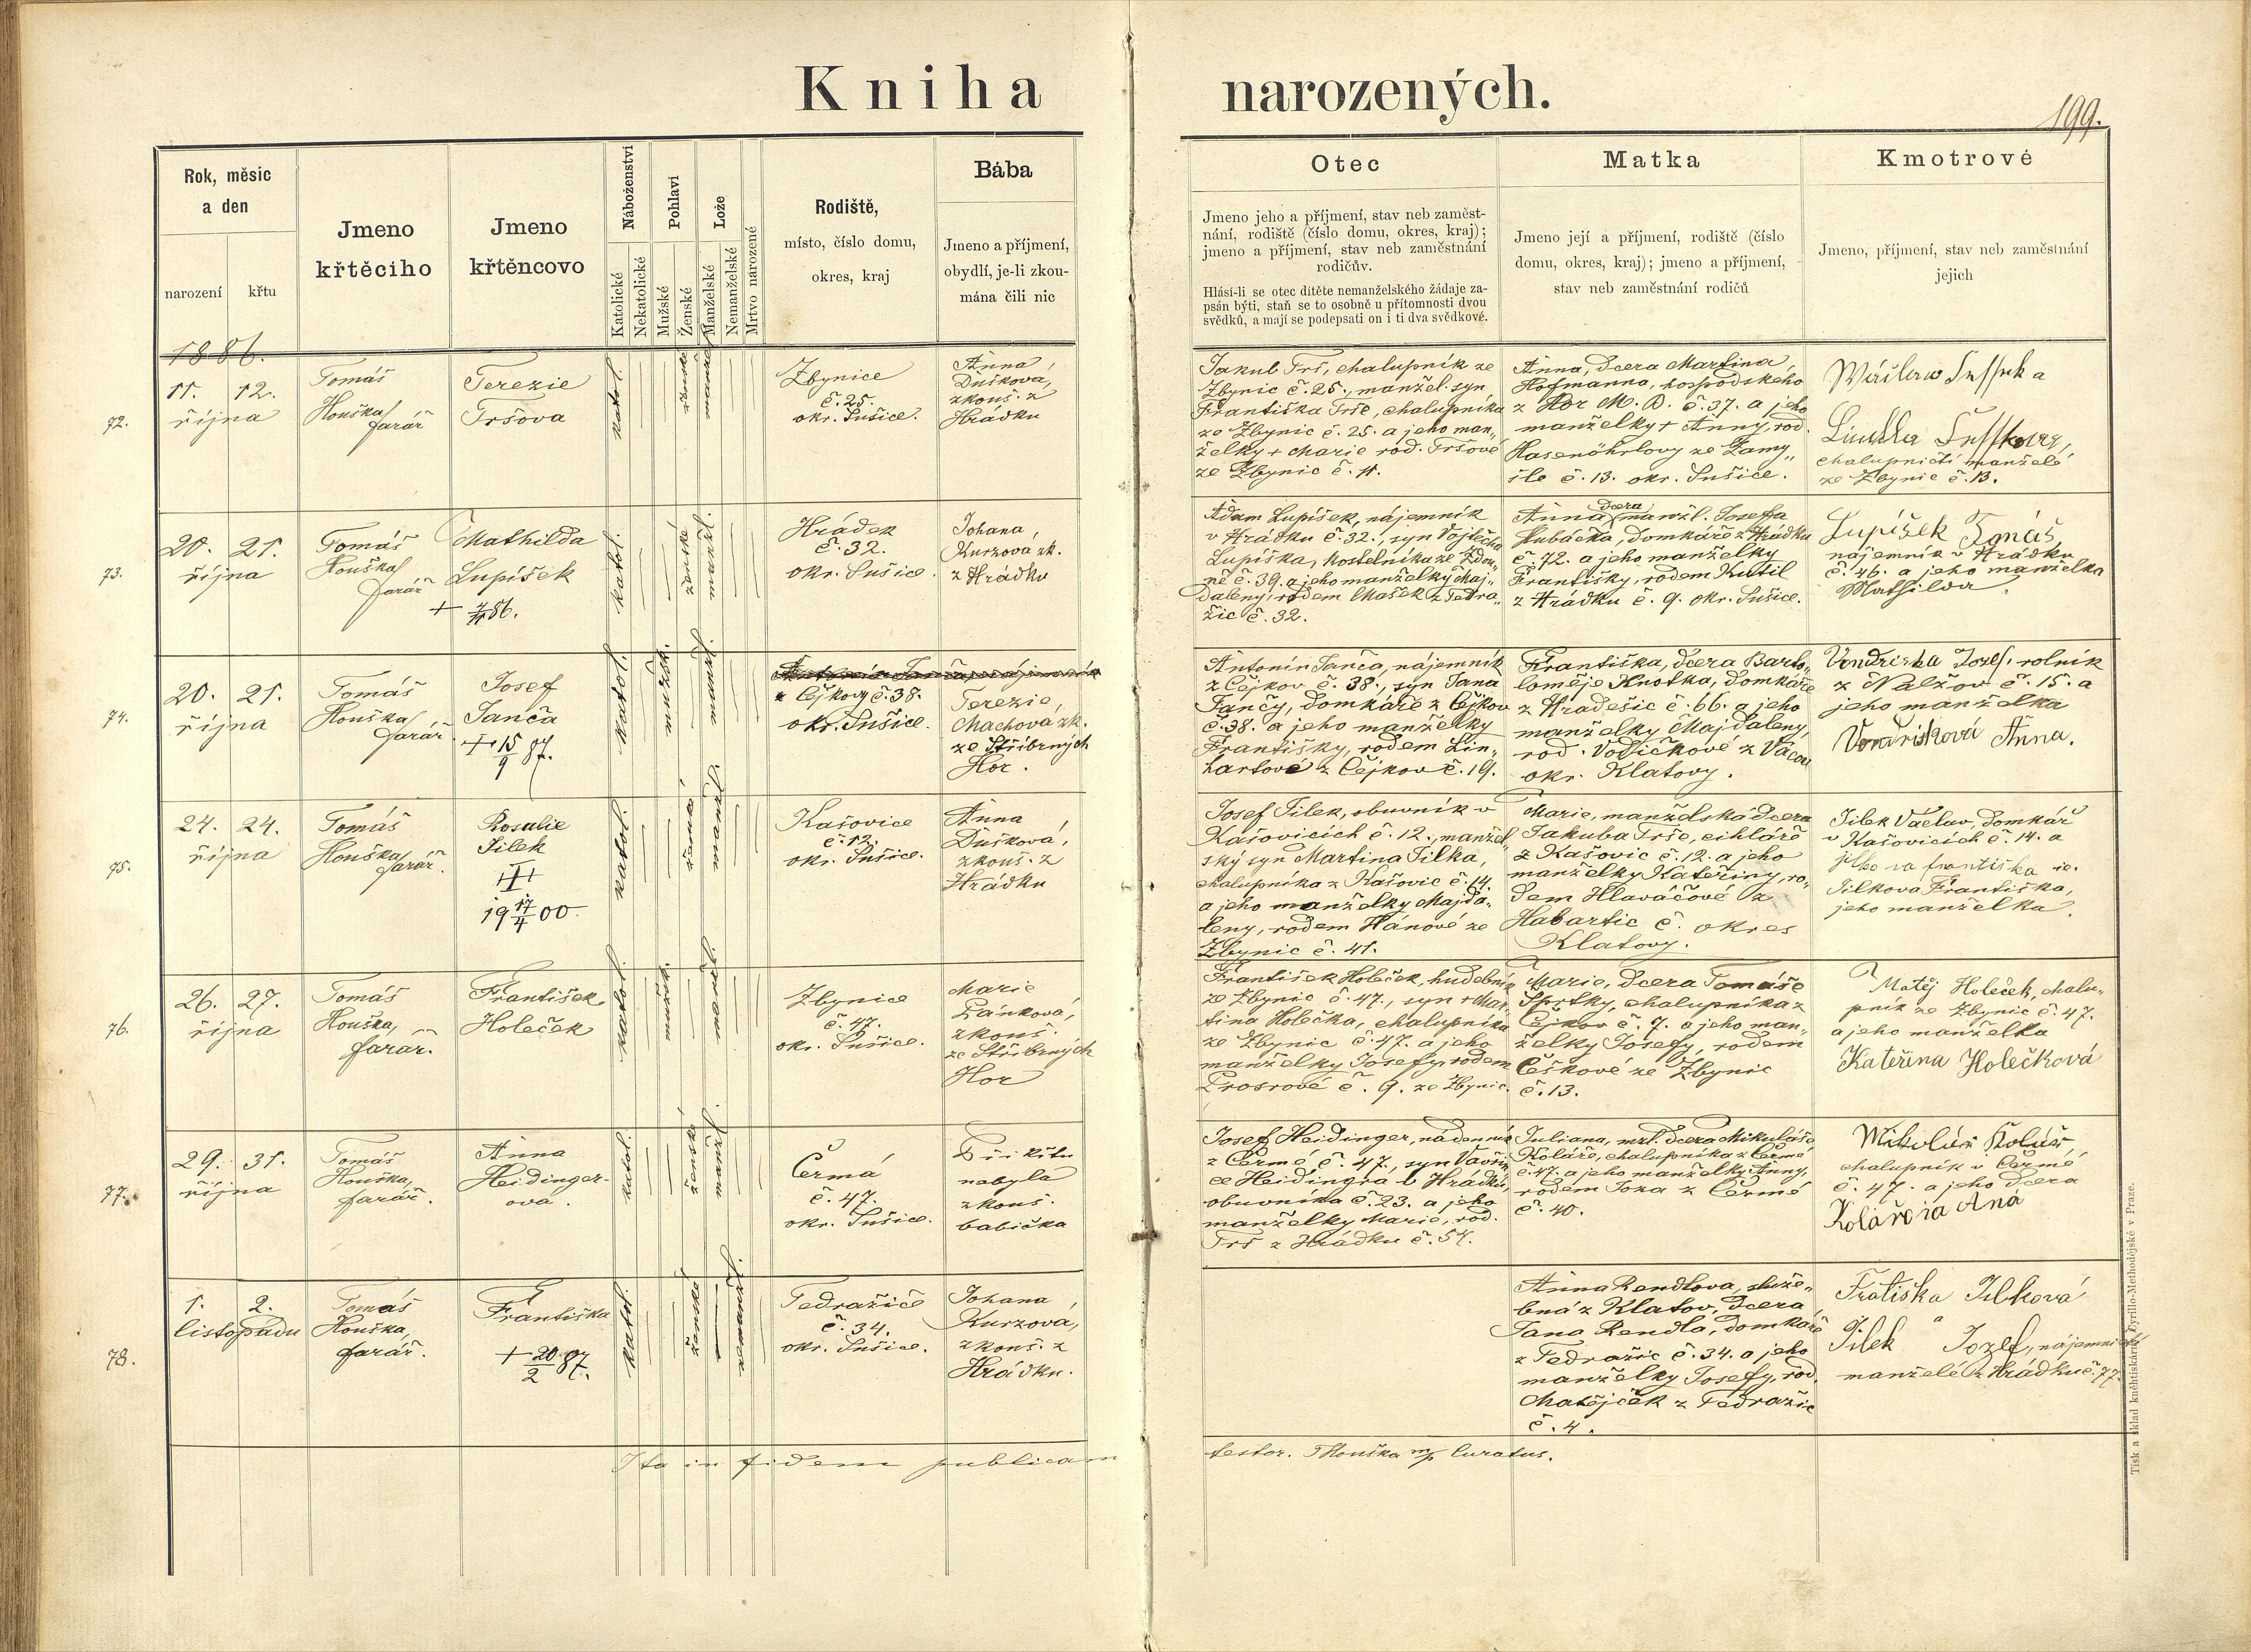 Kniha narozených.
199.
Rok, měsíc
a den
narození
křtu
Jmeno
křtěcího
Jmeno
křtěncovo
Náboženství
Katolické
Nekatolické
Pohlaví
Mužské
Ženské
Lože
Manželské
Nemanželské
Mrtvo narozené
Rodiště,
místo, číslo domu,
okres, kraj
Bába
Jmeno a příjmení,
obydlí, je-li zkou-
mána čili nic
Otec
Jmeno jeho a příjmení, stav neb zaměst-
nání, rodiště (číslo domu, okres, kraj);
jmeno a příjmení, stav neb zaměstnání
rodičův.
Hlásí-li se otec dítěte nemanželského žádaje za-
psán býti, staň se to osobně u přítomnosti dvou
svědků, a mají se podepsati on i ti dva svědkové.
Matka
Jmeno její a příjmení, rodiště (číslo
domu, okres, kraj); jmeno a příjmení,
stav neb zaměstnání rodičů
Kmotrové
Jmeno, příjmení, stav neb zaměstnání
jejich
1886.
72.
11. 12.
října
Tomáš
Houška
farář
Terezie
Tršova
katol.
ženské
manžel
Zbynice
č. 25.
okr. Sušice.
Anna
Dušková,
zkouš. z
Hrádku
Jakub Trš, chalupník ze
Zbynic č. 25., manžel. syn
Františka Trše, chalupníka
ze Zbynic č. 25. a jeho man„
želky + Marie rod. Tršové
ze Zbynic č. 11.
Anna, dcera Martina
Hofmanna, hospodského
z Hor M. B. č. 37. a jeho
manželky + Anny, rod.
Hasenöhrlovy ze Zamy„
šle č. 13. okr. Sušice.
chalupničtí manželé
ze Zbynic č. 13.
73.
20. 21.
října
Tomáš
Houška
farář
Mathilda
Lupíšek
+ 7/11 86.
katol.
ženské
manžel.
Hrádek
č. 32.
okr. Sušice.
Johana,
Kurzova zk.
z Hrádku
Adam Lupíšek, nájemník
v Hrádku č. 32., syn Vojtěcha
Lupíška, kostelníka ze Zdou„
ně č. 39. a jeho manželky Maj„
daleny, rodem Mašek z Tedra„
žic č. 32.
dcera
Anna manžl. Josefa
Hubáčka, domkáře z Hrádku
č. 72. a jeho manželky
Františky, rodem Kutil
z Hrádku č. 9. okr. Sušice.
Lupíšek Tomáš
nájemník v Hrádku
č. 46. a jeho manželka
Mathilda.
74.
20. 21.
října
Tomáš
Houška
farář
Josef
Janča
+ 15/9 87.
katol.
mužsk.
manžel.
z Čejkov č. 38.
okr. Sušice.
Terezie,
Machova zk.
ze Stříbrných
Hor.
Antonín Janča, nájemník
z Čejkov č. 38., syn Jana
Jančy, domkáře z Čejkov
č. 38. a jeho manželky
Františky, rodem Lin„
hartové z Čejkov č. 19.
Františka, dcera Barto„
loměje Knotka, domkáře
z Hradešic č. 66. a jeho
manželky Majdaleny,
rod. Vodičkové z Vacov
okr. Klatovy.
Vondriska Jozef. rolník
z Nalžov č. 15. a
jeho manželka
Vondrisková Anna.
75.
24. 24.
října
Tomáš
Houška
farář.
Rosalie
Jilek
19 17/4 00.
katol.
manžel
Kašovice
č. 12.
okr. Sušice.
Anna
Dušková,
zkouš. z
Hrádku
Josef Jilek, obuvník v
Kašovicích č. 12., manžel„
ský syn Martina Jilka,
chalupníka z Kašovic č. 14.
a jeho manželky Majda„
leny, rodem Hánové ze
Zbynic č. 41.
Marie, manželská dcera
Jakuba Trše, cihláře
z Kašovic č. 12. a jeho
manželky Kateřiny, ro„
dem Hlaváčové z
Habartic č. okres
Klatovy.
Jilek Václav, domkář
v Kašovicích č. 14. a
Jilkova Františka,
jeho manželka.
76.
26. 27.
října
Tomáš
Houška,
farář.
František
Holeček
katol.
mužsk.
manžel.
Zbynice
č. 47.
okr. Sušice.
Marie
Pánková,
zkouš.
ze Stříbrných
Hor
František Holeček, hudebník
ze Zbynic č. 47., syn + Mar„
tina Holečka, chalupníka
ze Zbynic č. 47. a jeho
manželky Josefy, rodem
Prosrové č. 9. ze Zbynic.
Marie, dcera Tomáše
Sprtky, chalupníka z
Čejkov č. 7. a jeho man„
želky Josefy, rodem
Češkové ze Zbynic
č. 13.
Matěj Holeček, chalu„
pník ze Zbynic č. 47.
a jeho manželka
Kateřina Holečková
77.
29. 31.
října
Tomáš
Houška,
farář.
Anna
Heidinger-
ova.
katol.
ženské
manžel.
Čermá
č. 47.
okr. Sušice.
Při křtu
nabyla
zkouš.
babička
Josef Heidinger, nádenník
z Čermé č. 47., syn Vavřin
ce Heidingra z Hrádku,
obuvníka č. 23. a jeho
manželky Marie, rod.
Trš z Hrádku č. 54.
Juliana, mzl. dcera Mikuláše
Koláře, chalupníka z Čermé
č. 47. a jeho manželky Anny,
rodem Joza z Čermé
č. 40.
Mikoláš Kolář,
chalupník v Čermé,
č. 47. a jeho dcera
Kolářova Aná
78.
1. 2.
listopadu
Tomáš
Houška,
farář.
Františka
+ 20/2 87.
katol.
ženské
nemanžel.
Tedražice
č. 34.
okr. Sušice.
Johana
Kurzova,
zkouš. z
Hrádku.
Anna Rendlova, služe„
bná z Klatov, dcera
Jana Rendla, domkáře
z Tedražic č. 34. a jeho
manželky Josefy, rod.
Matějček z Tedražic
č. 4.
Fratiska Jilková
a
Jilek Jozef, nájemničtí
manželé z Hrádku č. 77.
Ita in fidem publicam
testor. T Houška m/p Curatus.
Tisk a sklad knihtiskárny Cyrillo-Methodějské v Praze.